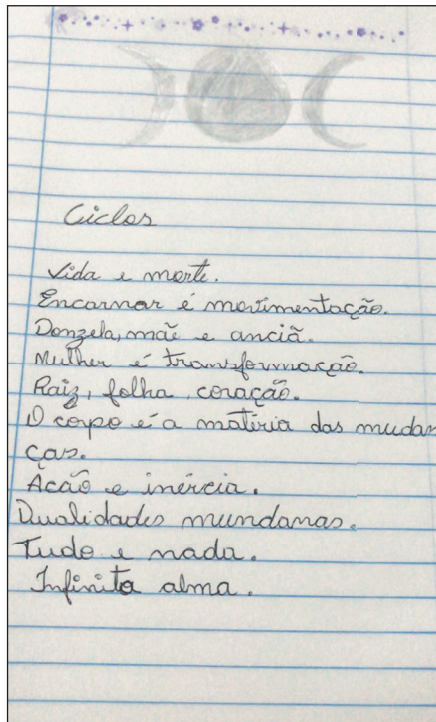 Ciclos
Vida e morte.
Encarnar é movimentação.
Donzela, mãe e anciã.
Mulher é transformação.
Raiz, folha, coração.
O corpo é a matéria das mudan
ças.
Acão e inércia.
Dualidades mundanas.
Tudo e nada.
Infinita alma.